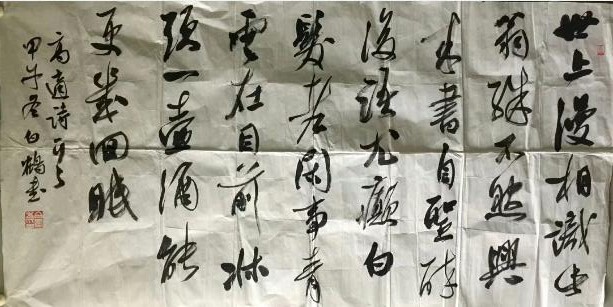 世上漫相識此
翁殊不然興
来書自聖醉
後語尤癲白
髮老閑事青
雲在目前牀
頭一壺酒能
更幾回眠
高適詩一首
甲午冬白鶴書